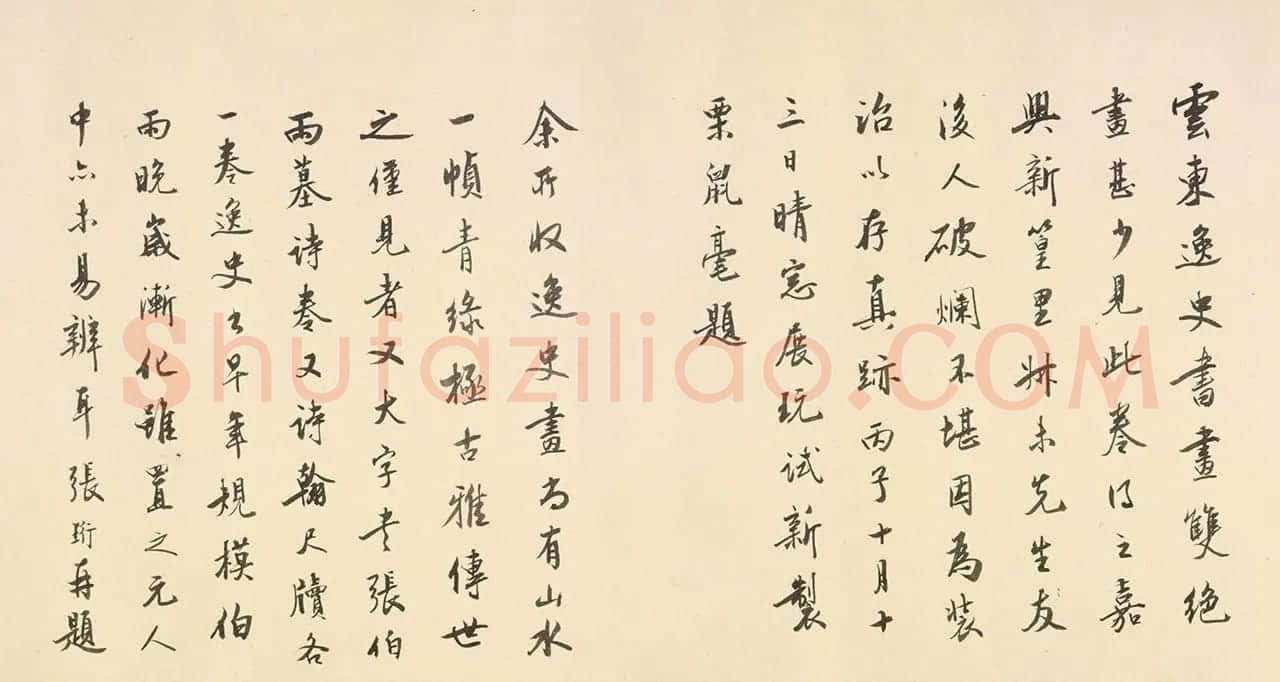 雲東逸史書畫雙絕
畫甚少見此卷得之嘉
興新篁里
先生友
後人破爛不堪因為裝
治以存真跡丙子十月十
三日晴窓展玩試新製
栗鼠毫題
余所收逸史畫尚有山水
一幀青綠極古雅傳世
之僅見者又大字書張伯
雨墓詩卷又詩翰尺牘各
一卷逸史書早年規模伯
雨晚歲漸化雖置之元人
中亦未易辨耳張珩再題
Shufaziliao.COM